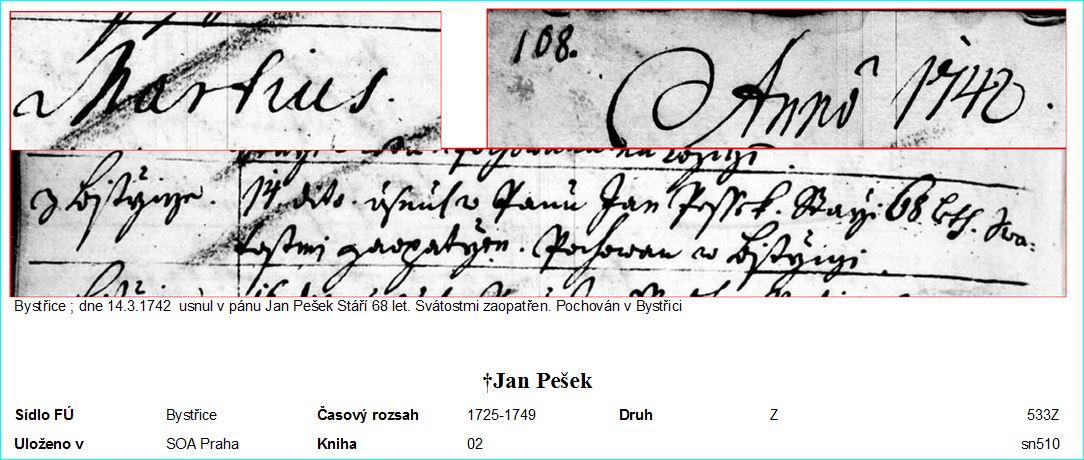 Martius.
108.
Anno 1742.
z Bistrzicze. 14. dito. usnul w Panu Jan Pessek. Starzi 68 leth. Swa=
tostmi zaopatrzen. Pochowan w Bistrziczi.
Bystřice ; dne 14.3.1742 usnul v pánu Jan Pešek Stáří 68 let. Svátostmi zaopatřen. Pochován v Bystřici
†Jan Pešek
Sídlo FÚ Bystřice Časový rozsah 1725-1749 Druh Z 533Z
Uloženo v SOA Praha Kniha 02 sn510